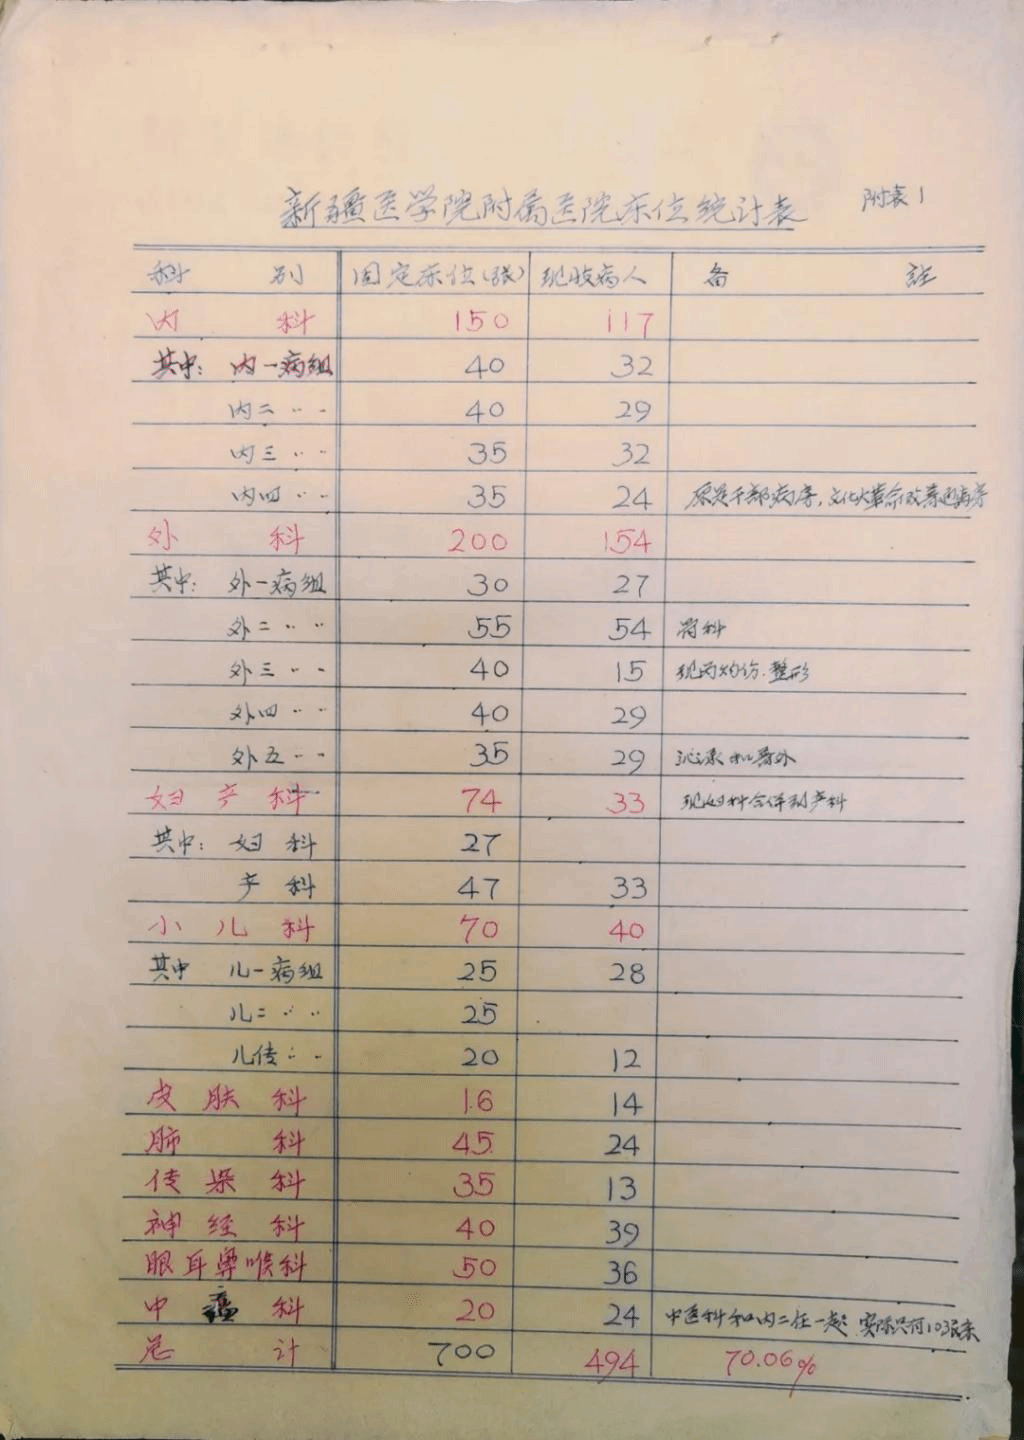 新疆医学院附属医院床位统计表 附表1
科别 固定床位(张) 现收病人 备註
内科 150 117
其中: 内一病组 40 32
内二 〃 〃 40 29
内三 〃 〃 35 32
内四 〃 〃 35 24 原是干部病房,文化大革命改普通病房
外科 200 154
其中: 外一病组 30 27
外二 〃 〃 55 54 骨科
外三 〃 〃 40 15 现为灼伤.整形
外四 〃 〃 40 29
外五 〃 〃 35 29 泌尿和普外
妇产科 74 33 现妇科合併到产科
其中: 妇科 27
产科 47 33
小儿科 70 40
其中 儿一病组 25 28
儿二 〃 〃 25
儿传 〃 〃 20 12
皮肤科 16 14
肺科 45 24
传染科 35 13
神经科 40 39
眼耳鼻喉科 50 36
中医科 20 24 中医科和内二在一起 实际只有10张床
总计 700 494 70.06%